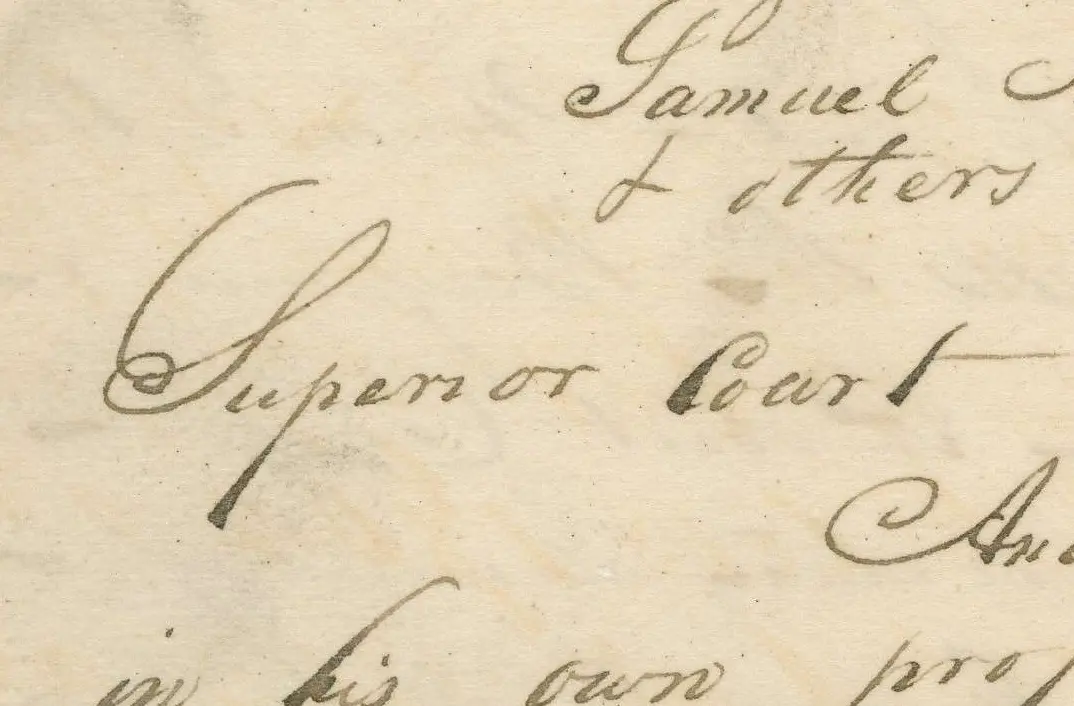 Samuel
& others
Superior Court
in his own